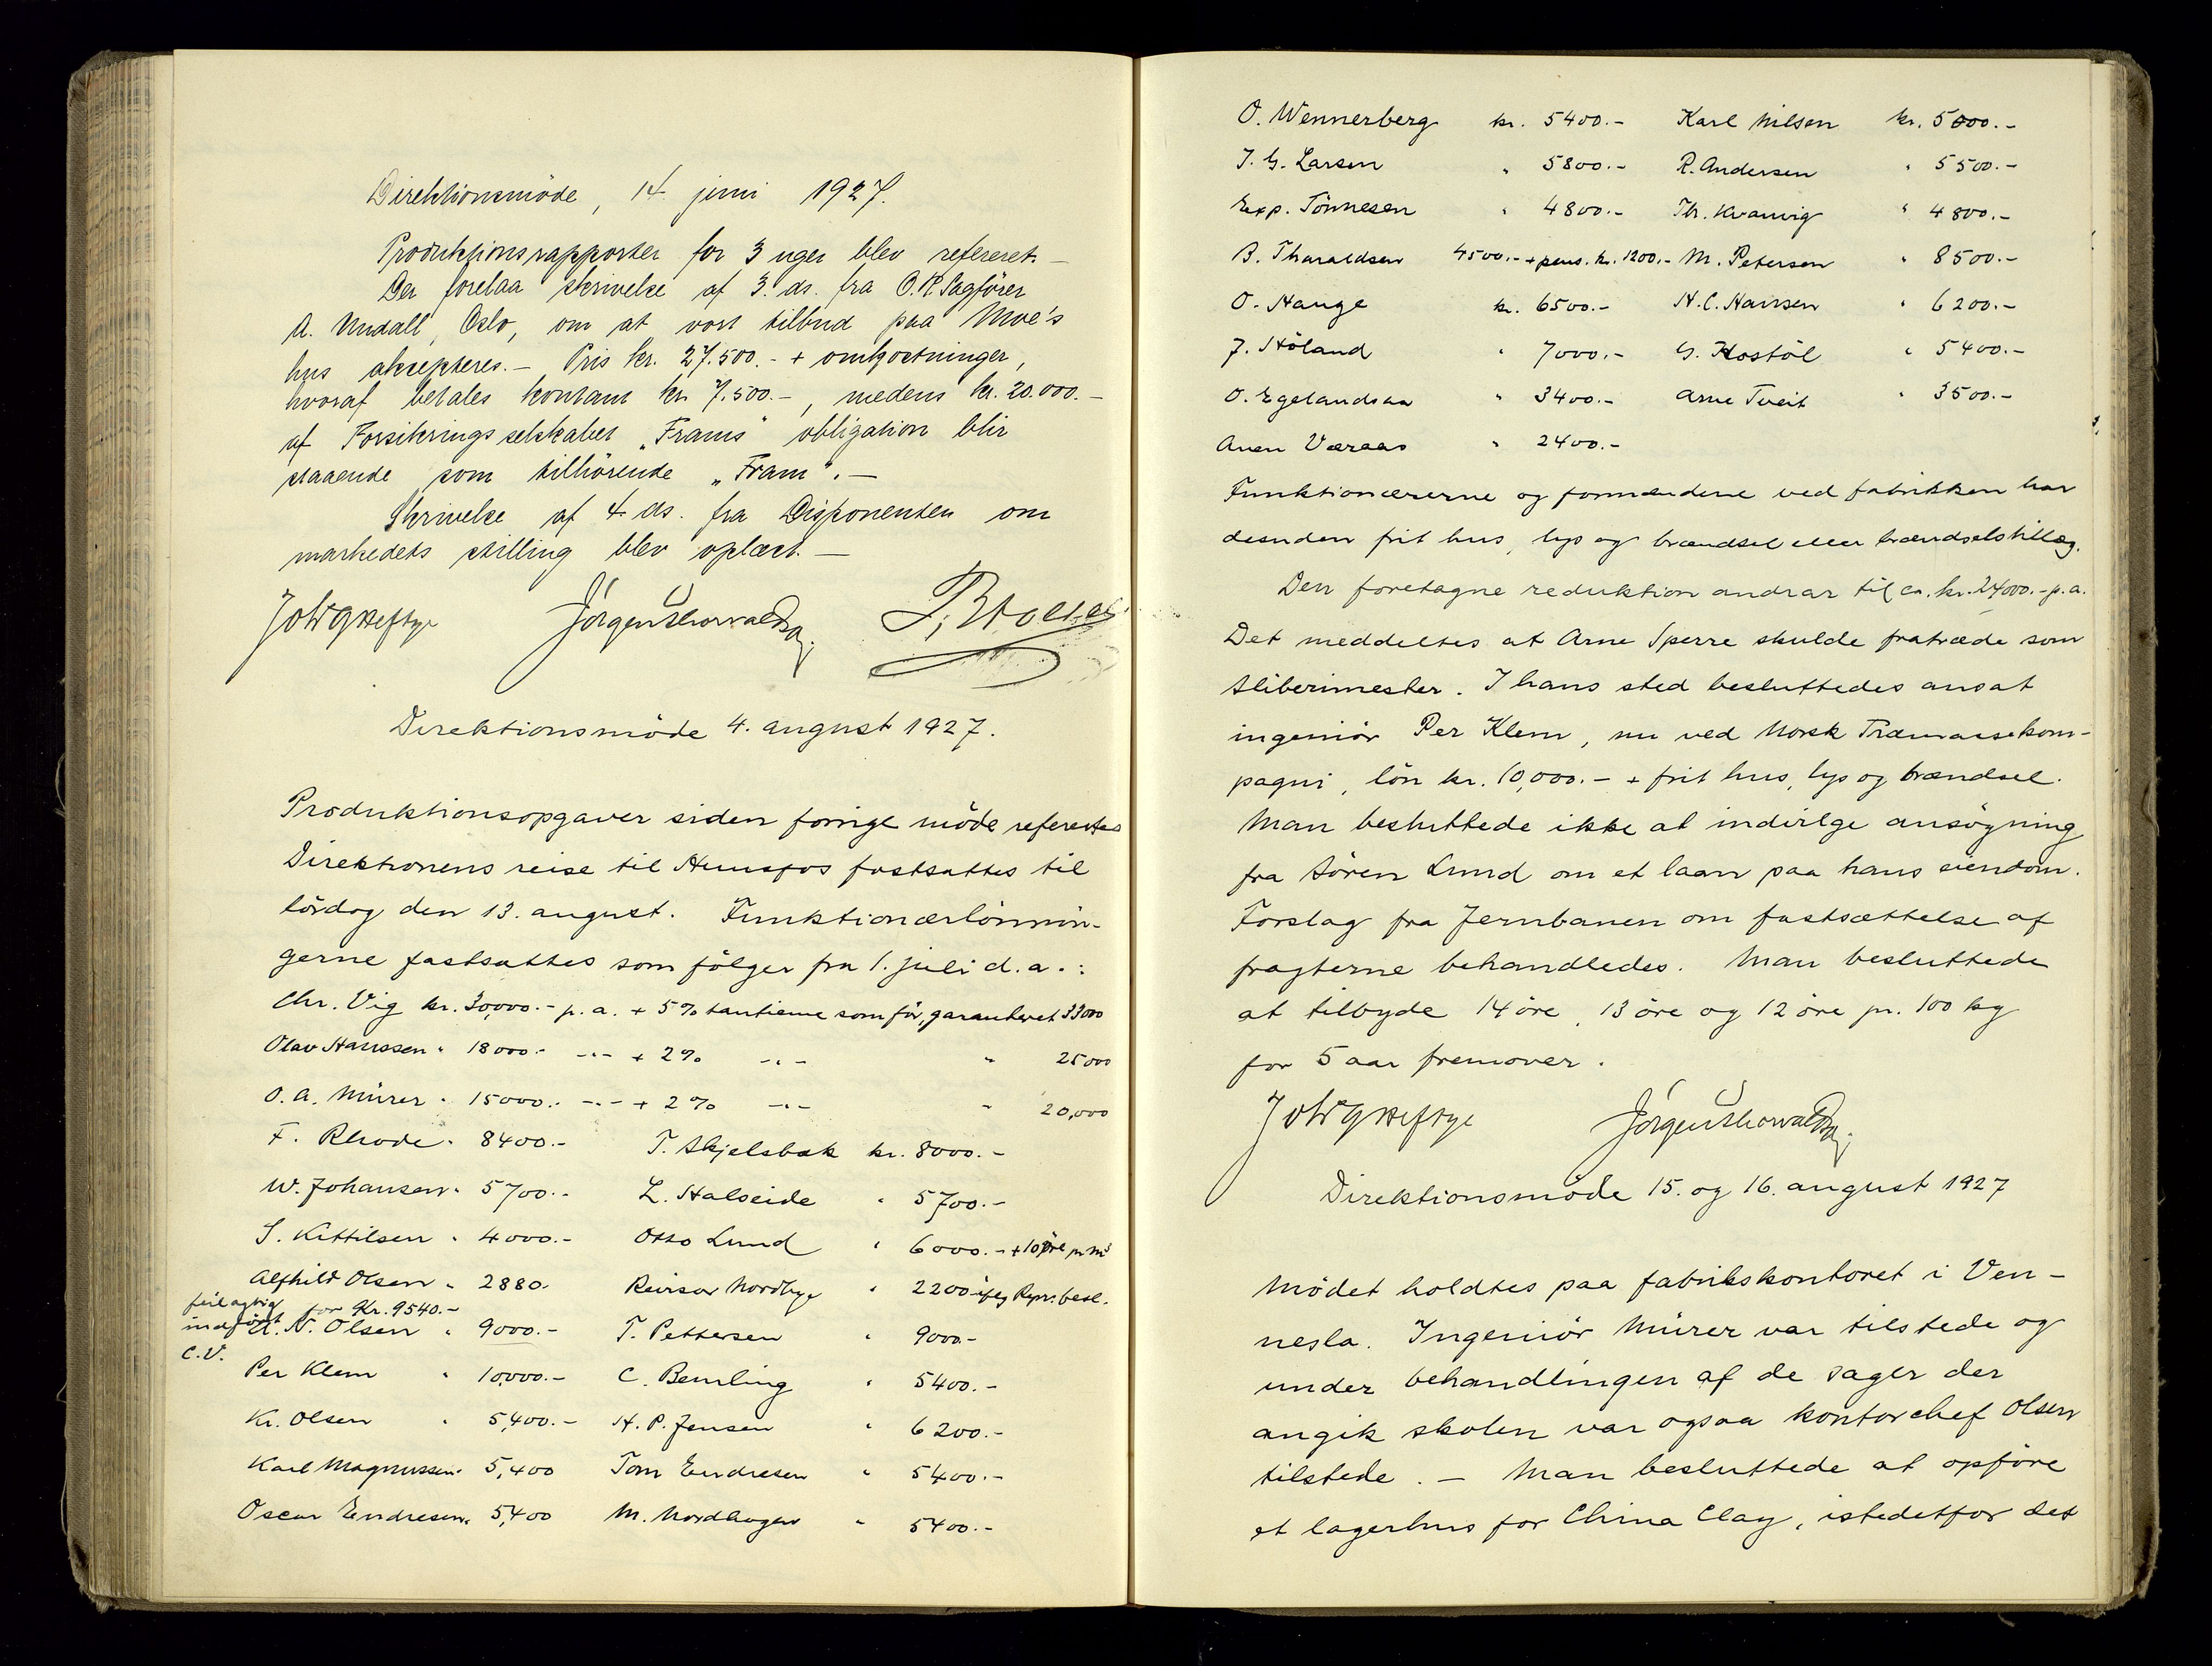 Direktionsmöde, 14. juni 1927.
Produktionsrapporter for 3 uger blev refereret. –
Der forelaa skrivelse af 3. ds. fra O.R.Sagförer
A. Undall, Oslo, om at vort tilbud paa Moe's
hus aksepteres. – Pris kr. 27.500.- + omkostninger,
hvoraf betales kontant kr. 7.500.-, medens kr. 20.000.-
af Forsikringsselskabet „Frams" obligation blir
staaende som tilhörende „Fram". –
Skrivelse af 4. ds. fra Disponenten om
markedets stilling blev oplæst. –
Direktionsmöde 4. august 1927.
Produktionsopgaver siden forrige möde refereres
Direktionens reise til Hunsfos fastsattes til
lördag den 13. august. Funktionærlönnin-
gerne fastsattes som fölger fra 1. juli d. a. :
Chr. Vig kr. 30,000.- p. a. + 5% tantieme som för, garanteret 33000
Olav Hanssen " 18000.- -"- + 2% -"- " 25000
O. A. Mürer " 15000.- -"- + 2% -"- " 20,000
F. Rhode " 8400.- T. Skjelsbæk kr. 8000.-
W. Johansen " 5700.- L. Halseide " 5700.-
S. Kittilsen " 4000.- Otto Lund " 6000.- + 10 öre pr m³
Alfhild Olsen " 2880. Revisor Nordbye " 2200 ifeg Repr. besl.
feilagtig indfört for Kr. 9540.- C.V.
A. N. Olsen " 9000.- T. Pettersen " 9000.-
Per Klem " 10,000.- C. Bemling " 5400.-
Kr. Olsen " 5,400.- H. P. Jensen " 6200.-
Karl Magnussen " 5,400 Tom Endresen " 5400.-
Oscar Endresen " 5,400 M. Nordhagen " 5400.-
O. Wennerberg kr. 5400.- Karl Nilsen kr. 5000.-
J. G. Larsen " 5800.- R. Andersen " 5500.-
Exp. Tönnesen " 4800.- Th. Kvarvig " 4800.-
B. Tharaldsen 4500.- + pens. kr. 1200.- M. Petersen " 8500.-
O. Hauge kr. 6500.- H. C. Hansen " 6200.-
J. Höland " 7000.- G. Hostöl " 5400.-
O. Egelandsaa " 3400.- Arne Tveit " 3500.-
Anen Væraas " 2400.-
Funktionærerne og formændene ved fabrikken har
desuden frit hus, lys og brændsel eller brændselstillæg.
Den foretagne reduktion andrar til ca. kr. 24000.- p. a.
Det meddeltes at Arne Sperre skulde fratræde som
sliberimester. I hans sted besluttedes ansat
ingeniör Per Klem, nu ved Norsk Træmassekom-
pagni, lön kr. 10,000.- + frit hus, lys og brændsel.
Man besluttede ikke at indvilge ansögning
fra Sören Lund om et laan paa hans eiendom.
Forslag fra Jernbanen om fastsættelse af
fragterne behandledes. Man besluttede
at tilbyde 14 öre, 13 öre og 12 öre pr. 100 kg
for 5 aar fremover.
Direktionsmöde 15. og 16. august 1927
Mödet holdtes paa fabrikskontoret i Ven-
nesla. Ingeniör Mürer var tilstede og
under behandlingen af de sager der
angik skolen var ogsaa kontorchef Olsen
tilstede. – Man besluttede at opföre
et lagerhus for China Clay, istedetfor det